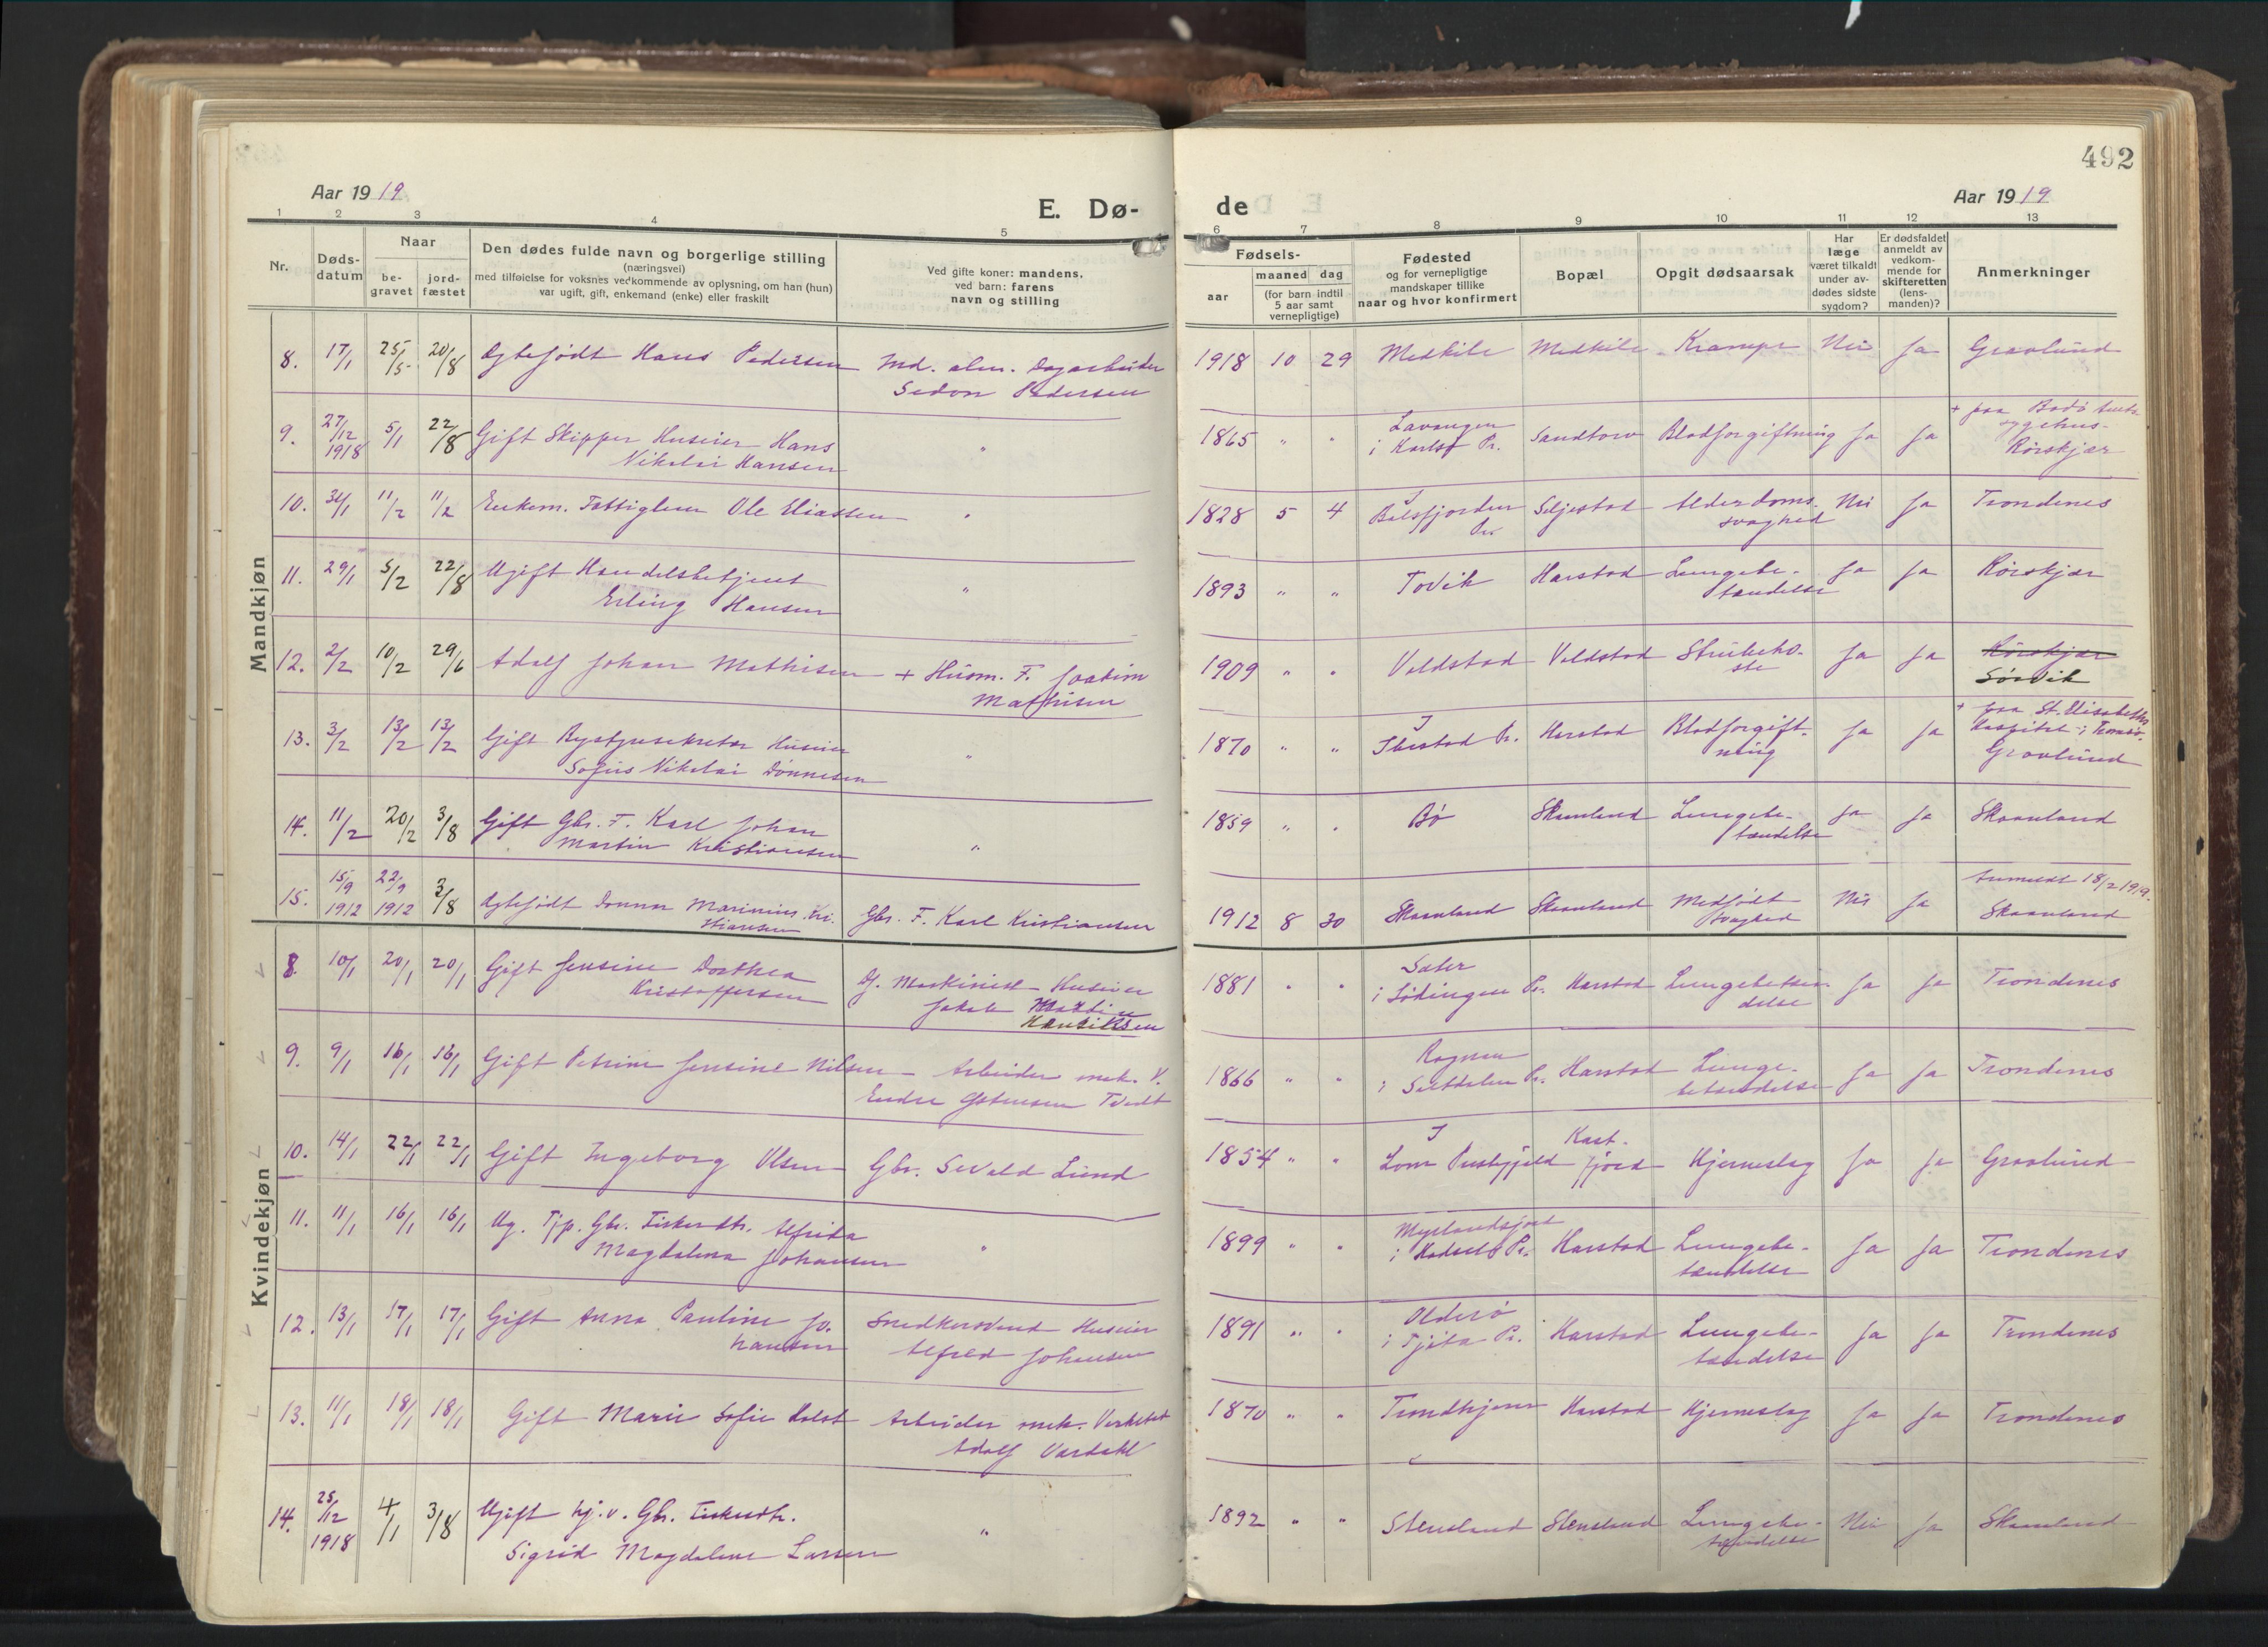 492
Aar 1919
E. Dø-
de
Aar 1919
1 2 3 4 5 6 7 8 9 10 11 12 13
Nr.
Døds-
datum
Naar
be-
gravet
jord-
fæstet
Den dødes fulde navn og borgerlige stilling
(næringsvei)
med tilføielse for voksnes vedkommende av oplysning, om han (hun)
var ugift, gift, enkemand (enke) eller fraskilt
Ved gifte koner: mandens,
ved barn: farens
navn og stilling
Fødsels-
aar
maaned dag
(for barn indtil
5 aar samt
vernepligtige)
Fødested
og for vernepligtige
mandskaper tillike
naar og hvor konfirmert
Bopæl
Opgit dødsaarsak
Har
læge
været tilkaldt
under av-
dødes sidste
sygdom?
Er dødsfaldet
anmeldt av
vedkom-
mende for
skifteretten
(lens-
manden)?
Anmerkninger
Mandkjøn
8. 17/1 25/5 20/8 Hans Pedersen
Pedersen
1918 10 29 Medkile Medkile Krampe Nei Ja Gravlund
9. 27/12 1918 5/1 22/8 Gift Skipper Huseier Hans
Nikolai Hansen
"
1865 " " Lavangen
i Karlsø Pr.
Sandtorv Blodforgiftning Ja Ja
+ paa Bodø
sygehus.
Rørskjær
10. 11/2 11/2 Enkem. Fattiglem Ole Eliassen "
1828 5 4 I
Balsfjorden
Pr.
Seljestad Alderdoms-
svaghed
Nei Ja Trondenes
11. 29/1 5/2 22/8 Ugift Handelsbetjent
Erling Hansen
"
1893 " " Tovik Harstad Lungebe-
tændelse
Ja Ja Rørskjær
12. 2/2 10/2 29/6 Adolf Johan Mathisen + Husm. F. Joakim
Mathisen
1909 " " Voldstad Voldstad Strubeho-
ste
Ja Ja Rørskjær
Sørvik
13. 3/2 13/2 13/2 Gift Huseier
Sofus Nikolai Dønnesen
"
1870 " " I
Ibestad Pr. Harstad Blodforgift-
ning
Ja Ja
+ paa St. Elisabeths
Hospital i Tromsø.
Gravlund
14. 11/2 20/2 3/8 Gift Gbr. F. Karl Johan
Martin Kristiansen
"
1859 " " Bø Skaanland Lungebe-
tændelse
Ja Ja Skaanland
15. 15/9 1912 22/9 1912 3/8 Marinius Kri-
stiansen
Gbr. F. Karl Kristiansen
1912 8 30 Skaanland Skaanland Medfødt
svaghed
Nei Ja
Anmeldt 18/2 1919.
Skaanland
Kvindekjøn
8. 10/1 20/1 20/1 Gift Jensine Dorthea
Kristoffersen
Maskinist Huseier
Jakob Martin
Henriksen
1881 " " Sæter
i Lødingen Pr. Harstad Lungebetæn-
delse
Ja Ja Trondenes
9. 9/1 16/1 16/1 Gift Petrine Jensine Nilsen - Arbeider mek. V.
Endre Tvedt
1866 " " Rognan
i Saltdalen Pr. Harstad Lunge-
betændelse
Ja Ja Trondenes
10. 14/1 22/1 22/1 Gift Ingeborg Olsen Gbr. Sevald Lund
1854 " " I
Lom Prestgjeld
Kast-
fjord
Hjerneslag Ja Ja Gravlund
11. 11/1 16/1 16/1 Ug. Tjp. Gbr. Fiskerdtr. Alfrida
Magdalena Johansen
"
1899 " "
i Hadsel Pr. Harstad Lungebe-
tændelse
Ja Ja Trondenes
12. 13/1 17/1 17/1 Gift Anna Pauline Jo-
hansen
Snedkersvend Huseier
Alfred Johansen
1891 " " Olderø
i Tjøtta Pr. Harstad Lungebe-
tændelse
Ja Ja Trondenes
13. 11/1 18/1 18/1 Gift Marie Sofie Holst Arbeider mek. Verksted
Adolf Vardahl
1870 " " Trondhjem Harstad Hjerneslag Ja Ja Trondenes
14. 25/12 1918 4/1 3/8 Ugift hj.v. Gbr. Fiskerdtr.
Sigrid Magdalene Larsen
"
1892 " " Stensland Stensland Lungebe-
tændelse
Nei Ja Skaanland